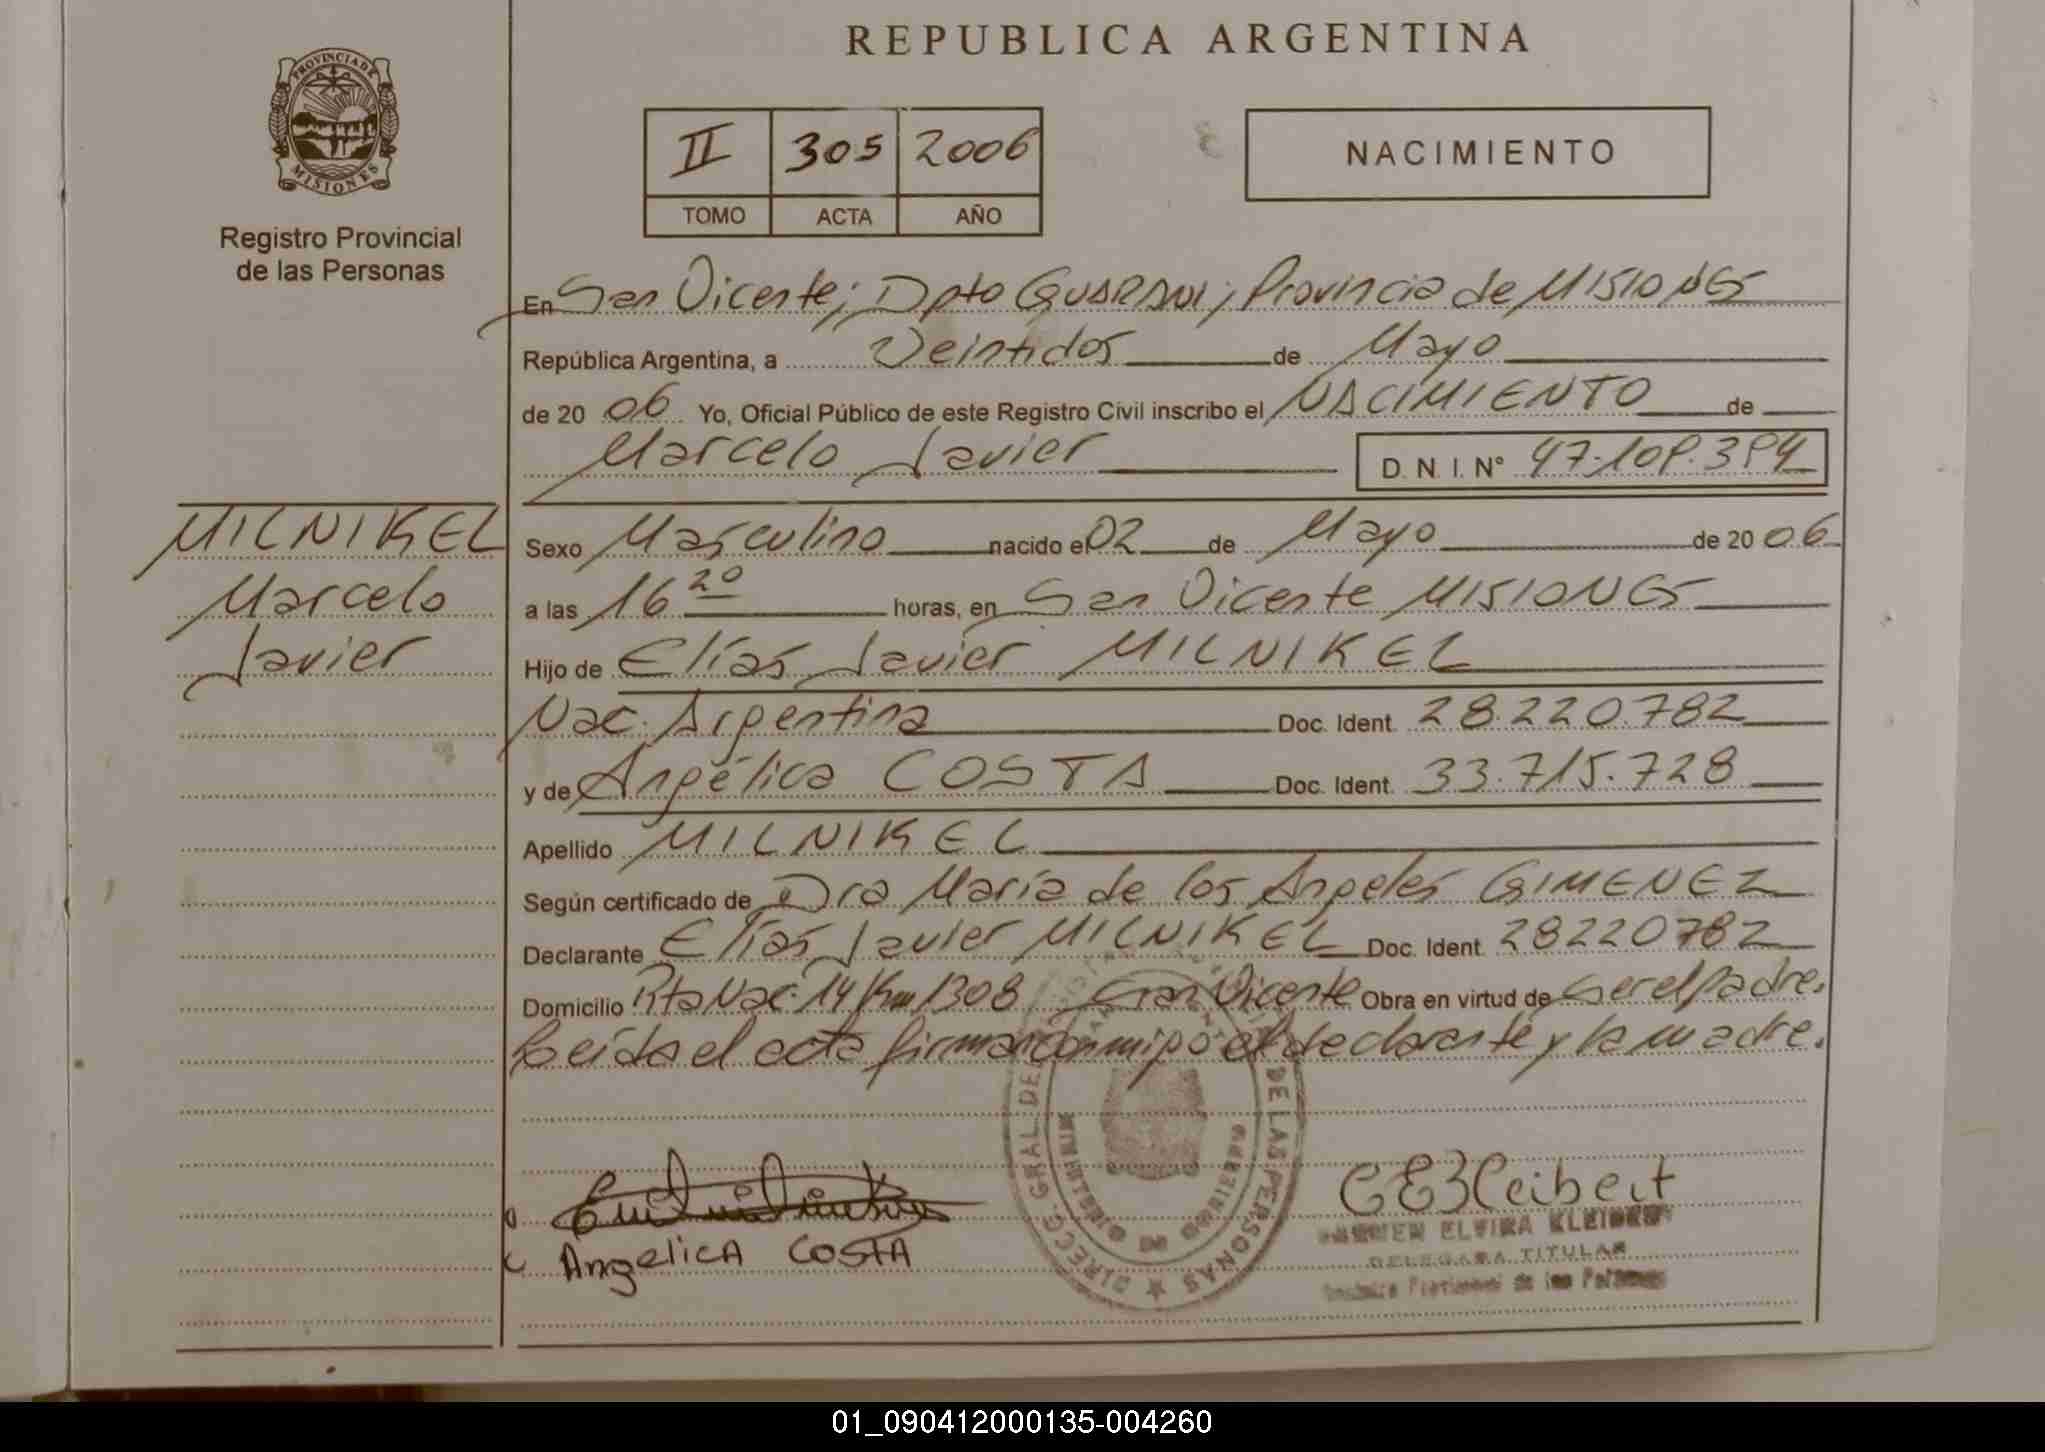 REPUBLICA ARGENTINA
PROVINCIA DE
MISIONES
Registro Provincial
de las Personas
II 305 2006
TOMO ACTA AÑO
NACIMIENTO
En San Vicente; Dpto GUARANI; Provincia de MISIONES
República Argentina, a Veintidos de Mayo
de 20 06 Yo, Oficial Público de este Registro Civil inscribo el NACIMIENTO de
Marcelo Javier D. N. I. Nº 47.109.394
MILNIKEL
Marcelo
Javier
Sexo Masculino nacido el 02 de Mayo de 20 06
a las 16 20 horas, en San Vicente MISIONES
Hijo de Elías Javier MILNIKEL
Nac. Argentina Doc. Ident. 28.220.782
y de Angélica COSTA Doc. Ident. 33.715.728
Apellido MILNIKEL
Según certificado de Dra María de los Angeles GIMENEZ
Declarante Elías Javier MILNIKEL Doc. Ident. 28220782
Domicilio Rta Nac. 14 Km 1308 San Vicente Obra en virtud de ser el padre.
Leída el acta firman conmigo el declarante y la madre.
DIRECC. GRAL. DEL DE LAS PERSONAS
MINISTERIO DE GOBIERNO
Angelica COSTA
CEKleibert
ELVIRA
DELEGADA TITULAR
de las Personas
01_090412000135-004260